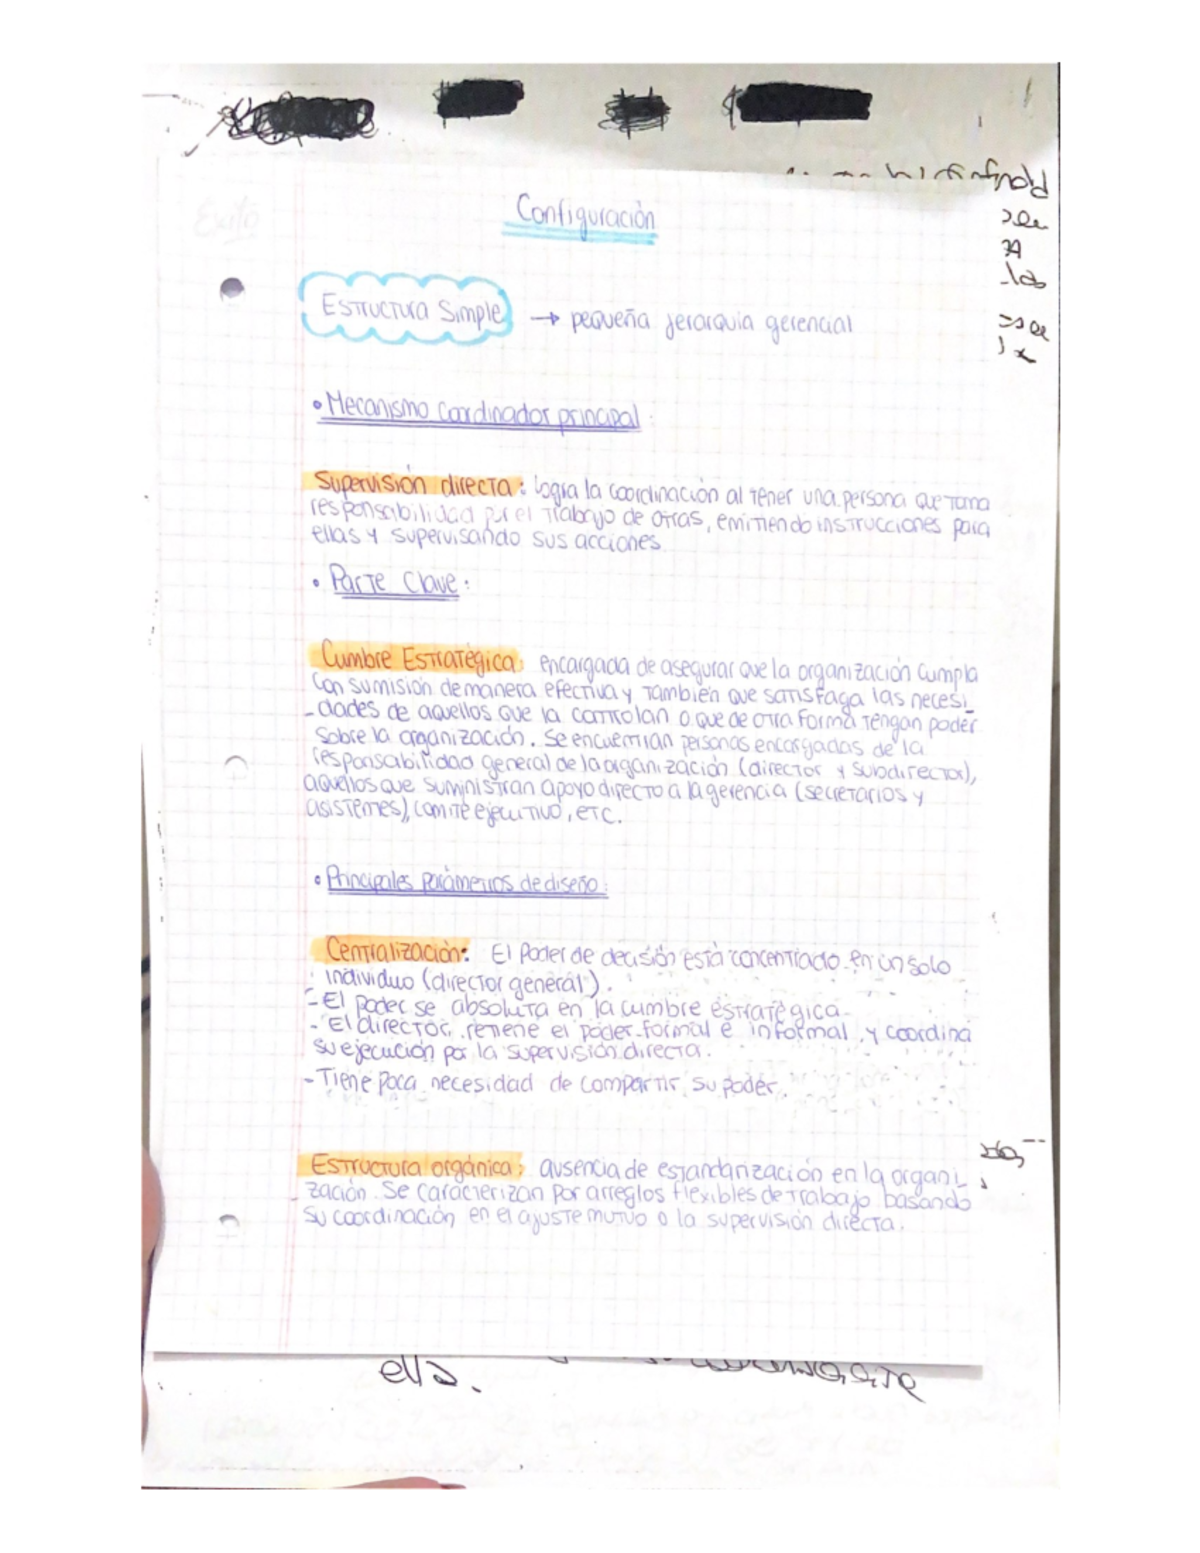 Éxito
Configuración
Estructura Simple → pequeña jerarquia gerencial
• Mecanismo Coordinador principal:
Supervisión directa: logra la coordinación al tener una persona que toma
responsabilidad por el trabajo de otras, emitiendo instrucciones para
ellas y supervisando sus acciones.
• Parte Clave:
Cumbre Estratégica: encargada de asegurar que la organización cumpla
Con su misión de manera efectiva y también que satisfaga las necesi_
_dades de aquellos que la controlan o que de otra forma tengan poder
sobre la organización. Se encuentran personas encargadas de la
responsabilidad general de la organización (director y subdirector),
aquellos que suministran apoyo directo a la gerencia (secretarios y
asistentes), comité ejecutivo, etc.
• Principales parámetros de diseño:
Centralización: El Poder de decisión está concentrado en un solo
individuo (director general).
- El poder se absoluta en la cumbre estratégica.
- El director, retiene el poder formal e informal y coordina
su ejecución por la supervisión directa.
- Tiene poca necesidad de compartir su poder.
Estructura orgánica: ausencia de estandarización en la organi_
_zación. Se caracterizan por arreglos flexibles de trabajo basando
su coordinación en el ajuste mutuo o la supervisión directa.
ella.